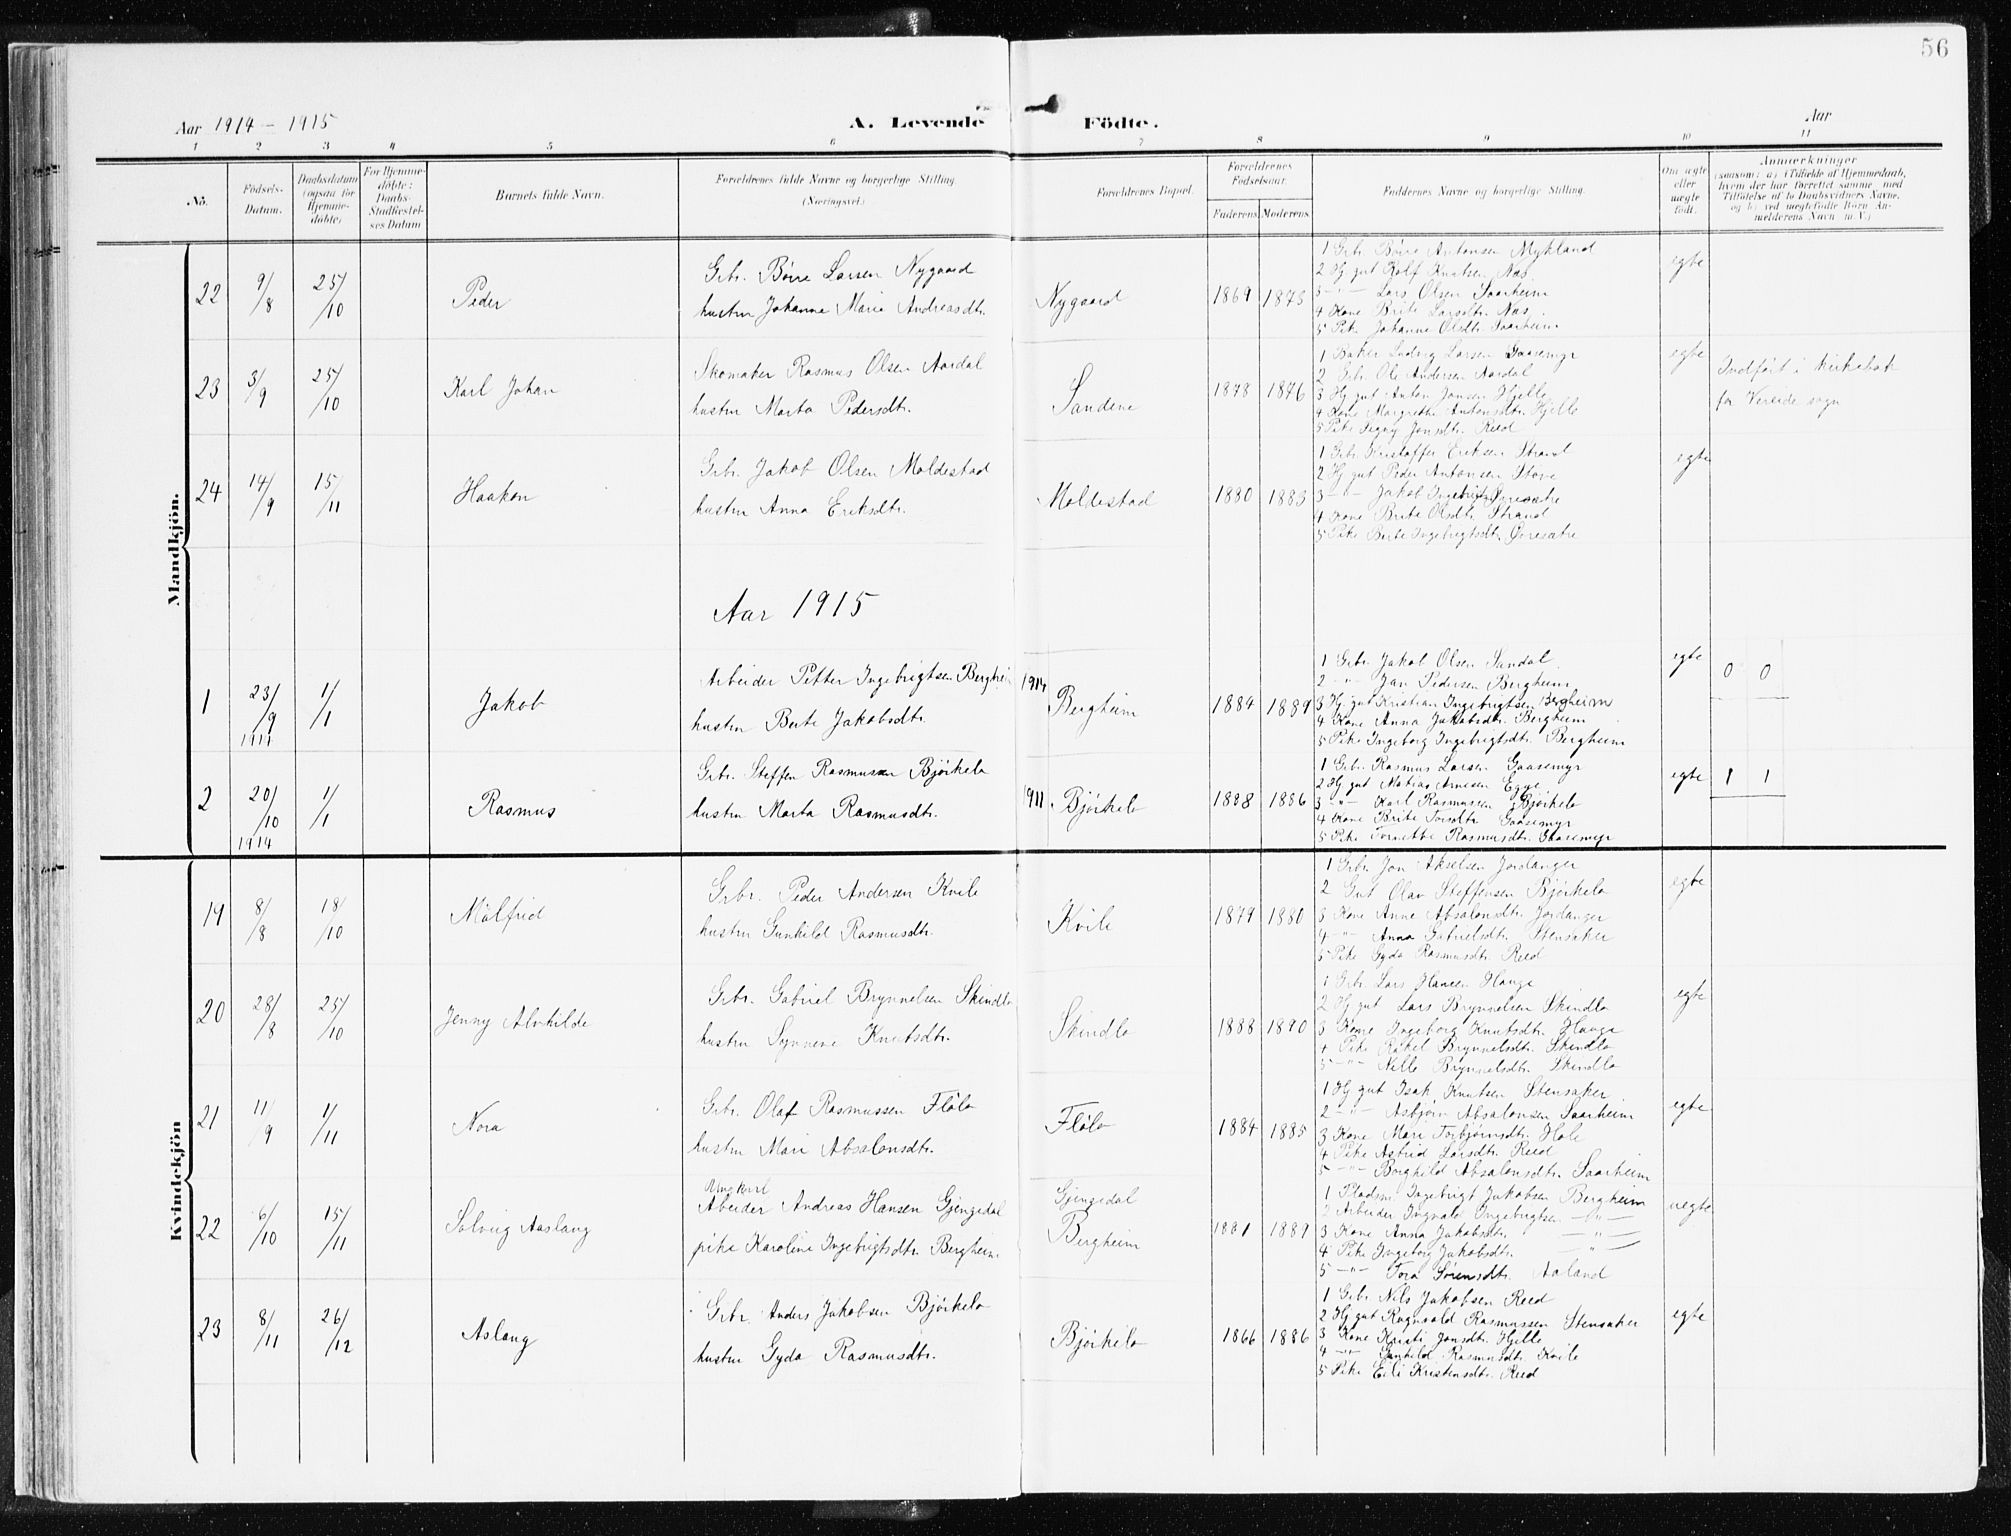 56
Aar 1914 – 1915
A. Levende Födte.
Aar
1 2 3 4 5 6 7 8 9 10 11
No.
Födsels-
Datum.
Daabsdatum
(ogsaa for
Hjemme-
döbte)
For Hjemme-
döbte:
Daabs-
Stadfæstel-
ses Datum
Barnets fulde Navn.
Forældrenes fulde Navne og borgerlige Stilling.
(Næringsvei.)
Forældrenes Bopæl.
Forældrenes
Fødselsaar.
Faderens. Moderens.
Faddernes Navne og borgerlige Stilling.
Om ægte
eller
uægte
født.
Anmærkninger
(saasom: a) i Tilfælde af Hjemmedaab,
hvem der har forrettet samme, med
Tilföielse af to Daabsvidners Navne,
og b) ved uægtefödte Börn An-
melderens Navn m.V.)
Mandkjön.
22 9/8 25/10 Peder
Grbr. Börre Larsen Nygaard
hustru Johanne Marie Andreasdtr.
Nygaard 1869 1875
1 Grbr. Börre Antonsen Mykland
2 Hj gut Rolf Knutsen Næs
3 -"- Lars Olsen Saarheim
4 Kone Brite Larsdtr. Næs
5 Pike Johanne Olsdtr. Saarheim
egte
23 3/9 25/10 Karl Johan
Skomaker Rasmus Olsen Aardal
hustru Marta Pedersdtr.
Sandene 1878 1876
1 Baker Ludvig Larsen Gaasemyr
2 Grbr. Ole Andersen Aardal
3 Hj gut Anton Jonsen Hjelle
4 Kone Margrethe Antonsdtr. Hjelle
5 Pike Signy Jonsdtr. Reed
egte
Indført i kirkebok
for Vereide sogn
24 14/9 15/11 Haakon
Grbr. Jakob Olsen Moldestad
hustru Anna Eriksdtr.
Moldestad 1880 1883
1 Grbr. Kristoffer Eriksen Strand
2 Hj gut Peder Antonsen Støve
3 -"- Jakob Ingebrigtsen
4 Kone Brite Olsdtr. Strand
5 Pike Berte Ingebrigtsdtr. Øvresætre
egte
Aar 1915
1 23/9 1914 1/1 Jakob
Arbeider Petter Ingebrigtsen Bergheim
hustru Berte Jakobsdtr.
1914 Bergheim 1884 1889
1 Grbr. Jakob Olsen Sandal
2 -"- Jan Pedersen Bergheim
3 Hj gut Kristian Ingebrigtsen Bergheim
4 Kone Anna Jakobsdtr. Bergheim
5 Pike Ingeborg Ingebrigtsdtr. Bergheim
egte 0 0
2 20/10 1914 1/1 Rasmus
Grbr. Steffen Rasmussen Bjørkelo
hustru Marta Rasmusdtr.
1911 Bjørkelo 1888 1886
1 Grbr. Rasmus Larsen Gaasemyr
2 Hj gut Matias Arnesen Egge
3 -"- Karl Rasmussen Bjørkelo
4 Kone Brite Gaasemyr
5 Pike Tomette Rasmusdtr. Gaasemyr
egte 1 1
Kvindekjön
19 8/8 18/10 Målfrid
Grbr. Peder Andersen Kvile
hustru Gunhild Rasmusdtr.
Kvile 1879 1880
1 Grbr. Jon Akselsen Jordanger
2 Gut Olav Steffensen Bjørkelo
3 Kone Anne Absalonsdtr. Jordanger
4 -"- Anna Gabrielsdtr. Stensaker
5 Pike Gyda Rasmusdtr. Reed
egte
20 28/8 25/10 Jenny Alvhilde
Grbr. Gabriel Brynnelsen Skindlo
hustru Synneve Knutsdtr.
Skindlo 1888 1890
1 Grbr. Lars Hansen Hauge
2 Hj gut Lars Brynnelsen Skindlo
3 Kone Ingeborg Knutsdtr. Hauge
4 Pike Rakel Brynnelsdtr. Skindlo
5 -"- Nille Brynnelsdtr. Skindlo
egte
21 11/9 1/11 Nora
Grbr. Olaf Rasmussen Fløla
hustru Mari Absalonsdtr.
Fløla 1884 1885
1 Hj gut Isak Knutsen Stensaker
2 -"- Asbjørn Absalonsen Saarheim
3 Kone Mari Torbjørnsdtr. Hole
4 Pike Astrid Larsdtr. Reed
5 -"- Borghild Absalonsdtr. Saarheim
egte
22 6/10 15/11 Solveig Aaslaug
Ungkarl
Abeider Andreas Hansen Gjengedal
pike Karoline Ingebrigtsdtr. Bergheim
Gjengedal
Bergheim 1881 1889
1 Pladsm. Ingebrigt Jakobsen Bergheim
2 Arbeider Ingvald Ingebrigtsen -"-
3 Kone Anna Jakobsdtr. -"-
4 Pike Ingeborg Jakobsdtr. -"-
5 -"- Tora Sørensdtr. Aaland
uegte
23 8/11 26/12 Aslaug
Grbr. Anders Jakobsen Bjørkelo
hustru Gyda Rasmusdtr.
Bjørkelo 1866 1886
1 Grbr. Nils Jakobsen Reed
2 Hj gut Ragnvald Rasmussen Stensaker
3 Kone Kristi Jonsdtr. Hjelle
4 -"- Gunhild Rasmusdtr. Kvile
5 Pike Eili Kristensdtr. Reed
egte